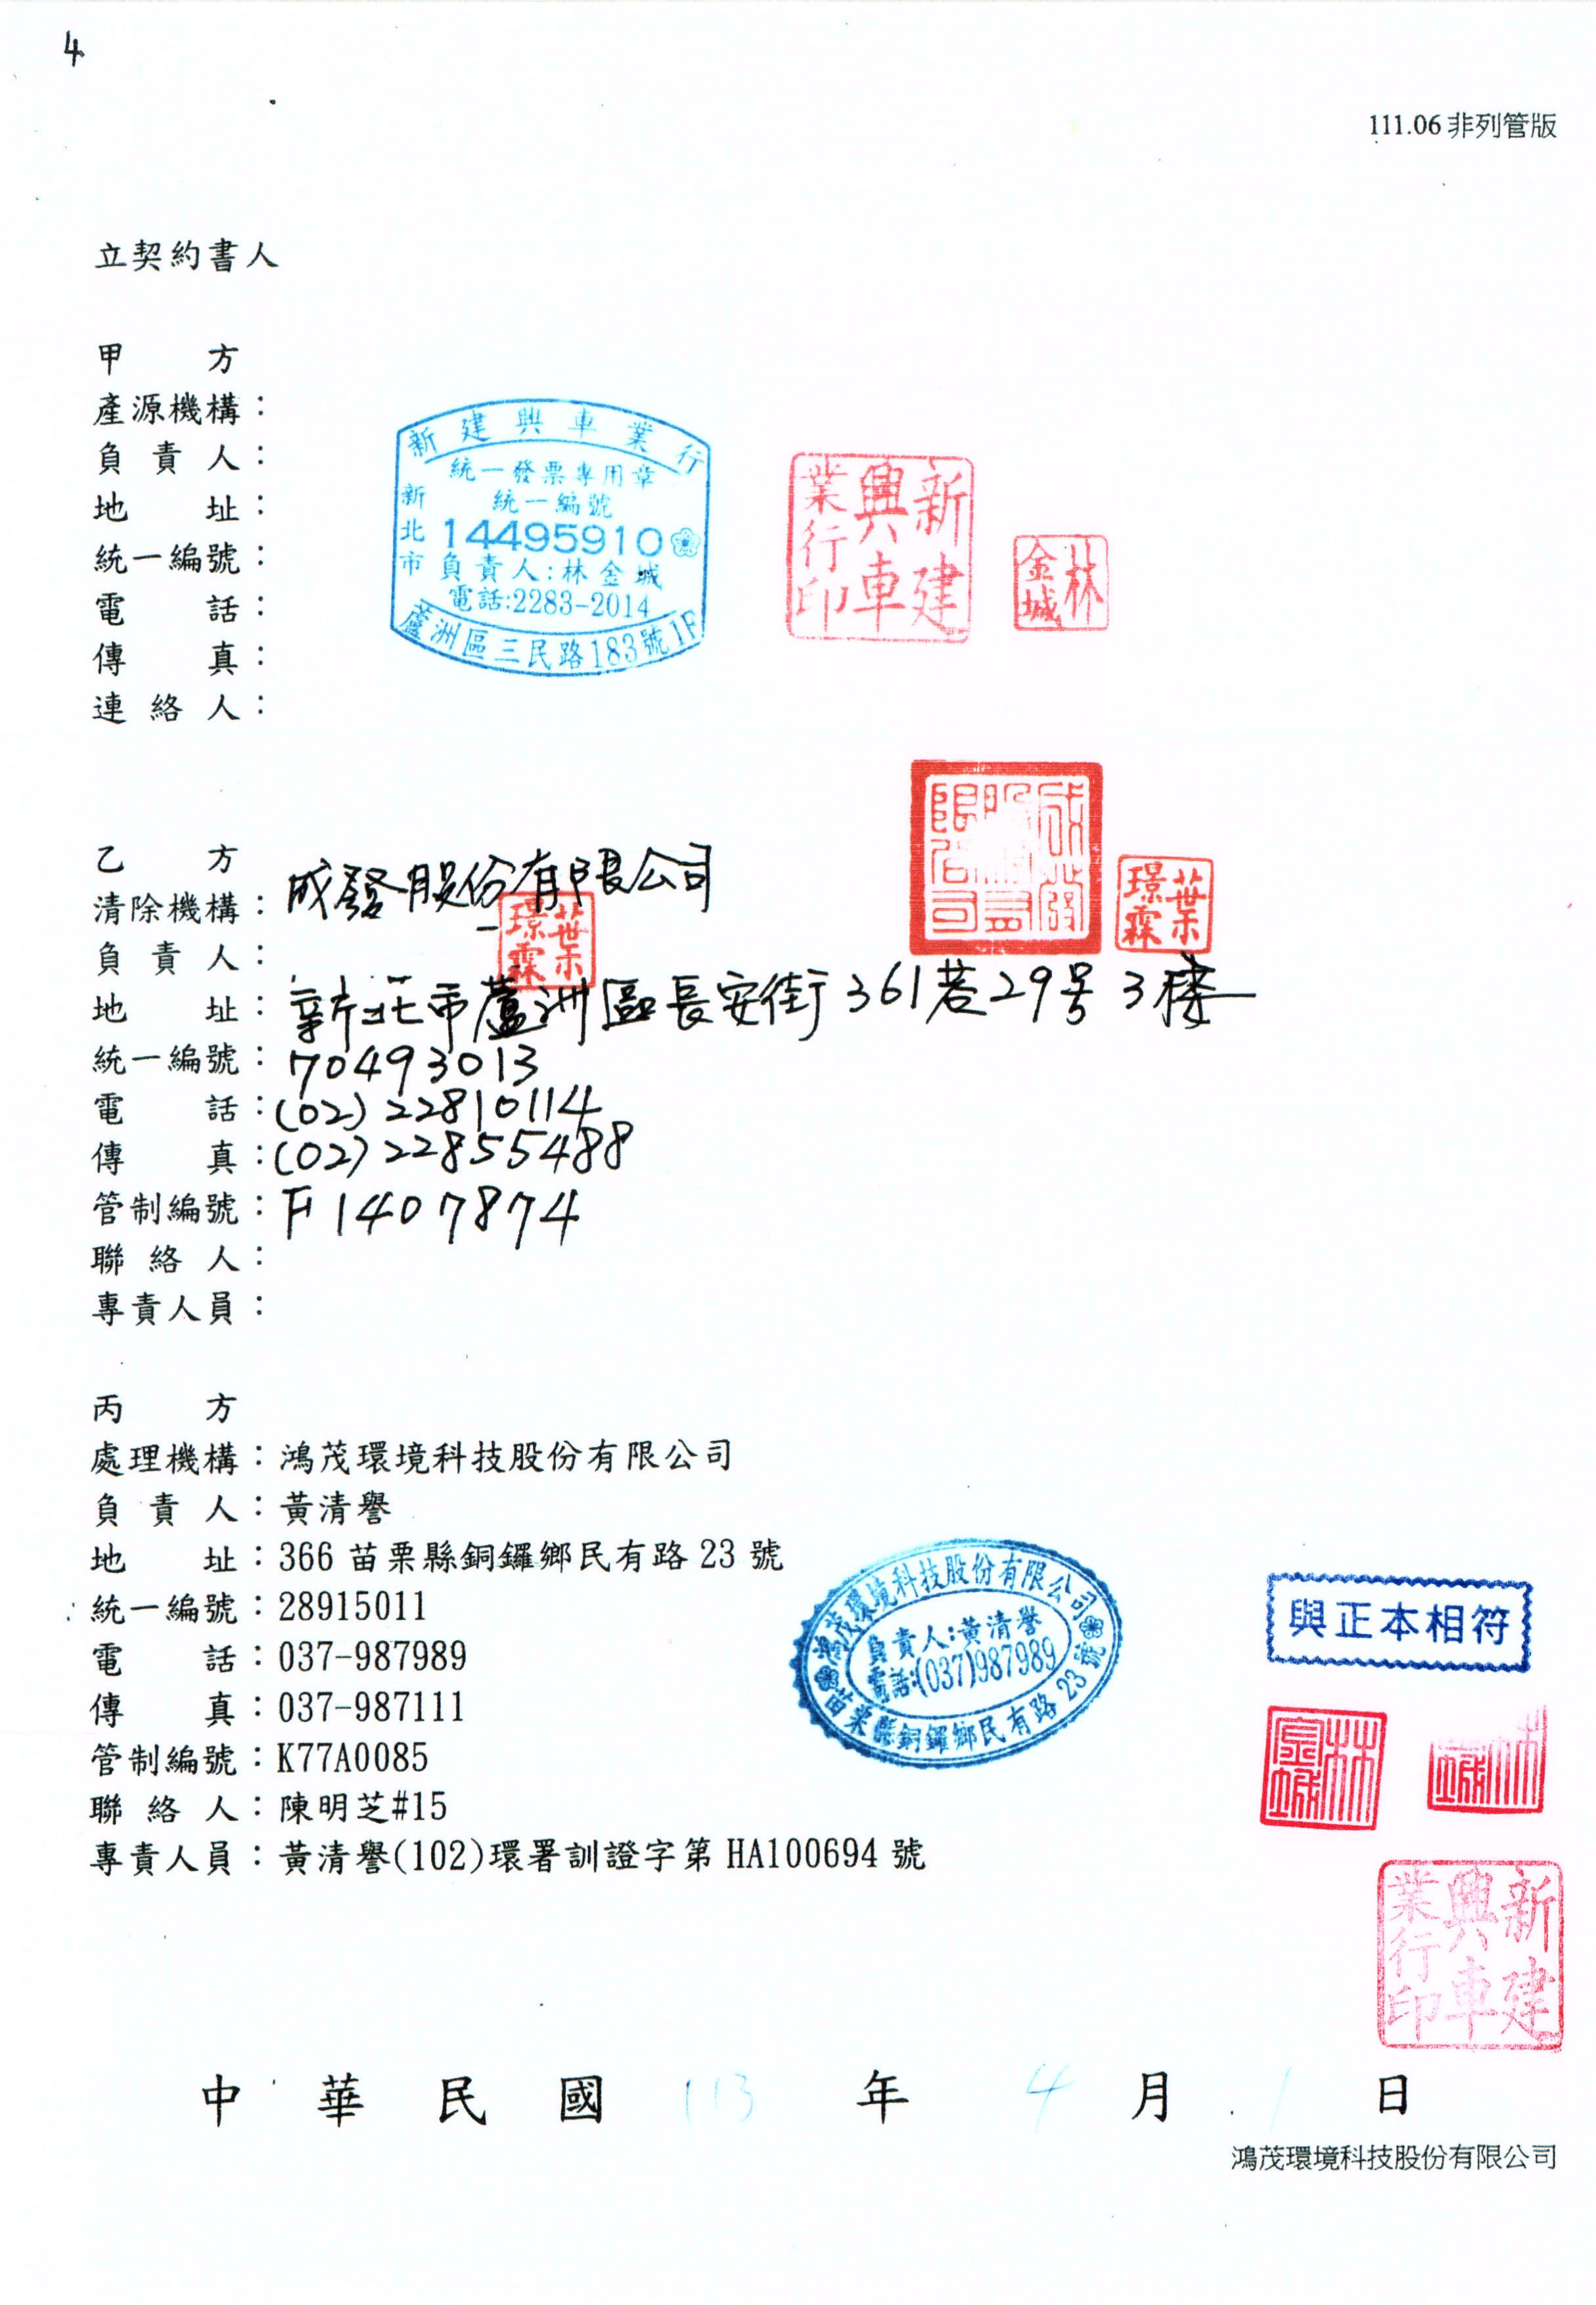 4
111.06 非列管版
立契約書人
甲 方
產源機構：
負 責 人：
地 址：
統一編號：
電 話：
傳 真：
連 絡 人：
新建興車業行
統一發票專用章
統一編號
新北市
14495910
負責人:林金城
電話:2283-2014
蘆洲區三民路183號1F
新建興車業行印
林金城
乙 方
清除機構：成發股份有限公司
負 責 人：葉璟霖
葉璟霖
地 址：新北市蘆洲區長安街361巷29号3樓
統一編號：70493013
電 話：(02)22810114
傳 真：(02)22855488
管制編號：F1407874
聯 絡 人：
專責人員：
丙 方
處理機構：鴻茂環境科技股份有限公司
負 責 人：黃清譽
地 址：366 苗栗縣銅鑼鄉民有路 23 號
統一編號：28915011
電 話：037-987989
傳 真：037-987111
管制編號：K77A0085
聯 絡 人：陳明芝#15
專責人員：黃清譽(102)環署訓證字第 HA100694 號
鴻茂環境科技股份有限公司
負責人:黃清譽
電話:(037)987989
苗栗縣銅鑼鄉民有路 23 號
與正本相符
林金城
林金城
新建興車業行印
中 華 民 國 113 年 4 月 1 日
鴻茂環境科技股份有限公司